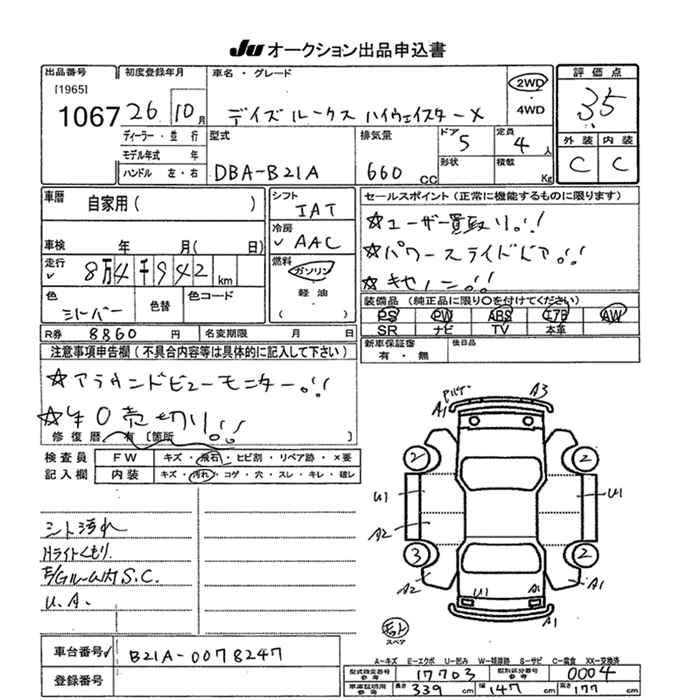 JU オークション出品申込書
出品番号
[1965]
1067
初度登録年月
26 10月
車名・グレード
デイズルークス ハイウェイスターX
2WD
・
4WD
評価点
3.5
外装 内装
C C
ディーラー・並行
モデル年式 年
ハンドル 左・右
型式
DBA-B21A
排気量
660 CC
ドア
5
形状
定員
4人
積載
Kg
車歴
自家用( )
車検 年 月( 日)
走行
8万4千942km
色
シルバー
色替
色コード
シフト
IAT
冷房
AAC
燃料
ガソリン
軽油
( )
セールスポイント(正常に機能するものに限ります)
☆ユーザー買取り!!
☆パワースライドドア!!
☆キセノン!!
装備品(純正品に限り〇を付けてください)
PS PW ABS エアB AW
SR ナビ TV 本革
新車保証書
有・無
後日品
R券 8860円
名変期限 月 日
注意事項申告欄(不具合内容等は具体的に記入して下さい)
☆アラウンドビューモニター!!
☆¥0売切り!!
修復歴 有 [箇所 ]
検査員
記入欄
FW キズ・飛石・ヒビ割・リペア跡・×要
内装 キズ・汚れ・コゲ・穴・スレ・キレ・破レ
シート汚れ
Hライトくもり
E/Gルーム内S.C.
U.A.
A1 A3
2 2
U1 U1
A2
3 2
A2 A1
U1 A1
A1
スペア
A-キズ E-エクボ U-凹み W-補修跡 S-サビ C-腐食 XX-交換済
車台番号 B21A-0078247
登録番号
型式指定番号
参考
17703
類別区分番号
参考
0004
車庫証明用
参考
長さ 339cm 幅 147cm 高さ 177cm